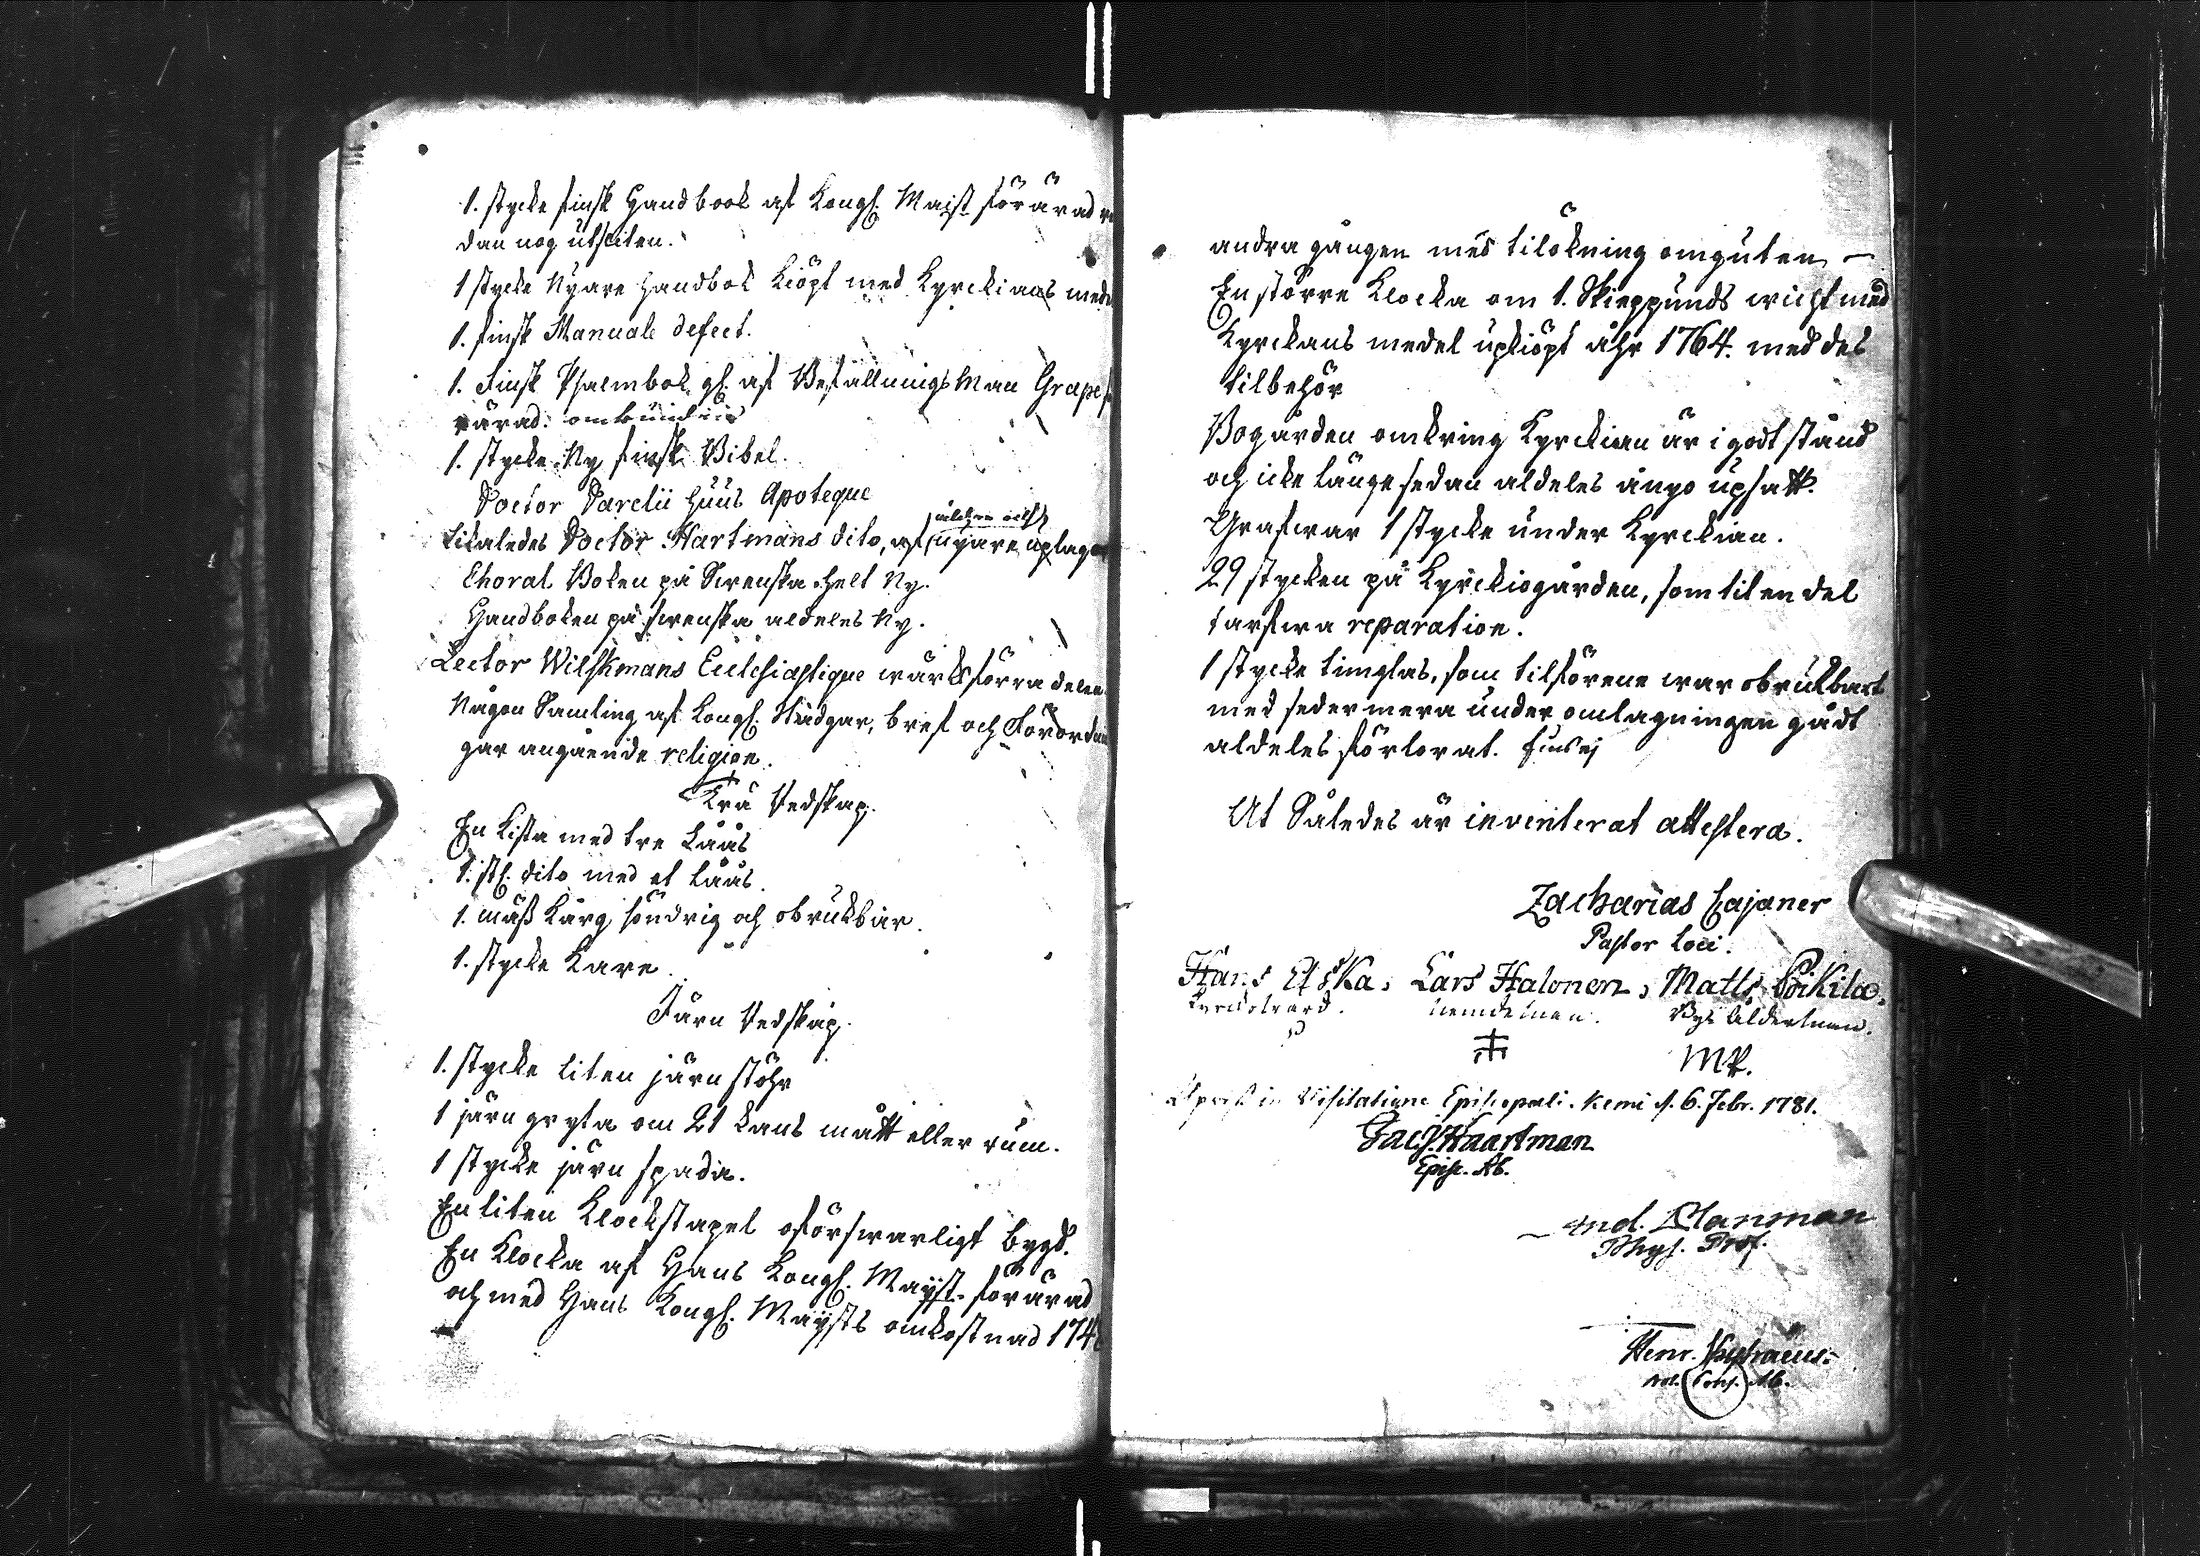 1. stycke finsk Handbook af Kongl. Majst förärad re
dan nog utsliten.
1 stycke Nyare Handbok kiöpt med Kyrckians mede
1. finsk Manuale defect.
1. Finsk Psalmbok gl. af Befallningsman Grape f
rärad: ombunden
1. stycke Ny finsk Bibel.
Doctor Darelii Huus Apoteque
Likaledes Doctor Hartmans dito, af nyare uplagor
Choral Boken på Swenska helt Ny.
Handboken på swenska aldeles Ny.
Lector Wilskmans Ecclesiastique wärk förra delen
Någon Samling af Kongl. Stadgar, bref och Förordnin
gar angående religion.
Trä Redskap.
En kista med tre Låås
1. st. dito med et låås.
1. mäss kärg söndrig och obrukbar.
1. stycke Kare.
Järn Redskap.
1. stycke liten järn stöhr
1 järn gryta om 21 kans mått eller rum.
1 stycke järn spada.
En liten Klockstapel oförswarligt bygd.
En Klocka af Hans Kongl. Mayst. förärad
och med Hans Kongl. Maysts omkostnad 174
andra gången med tilökning omguten —
En större Klocka om 1. Skieppunds wicht med
Kyrckans medel upkiöpt åhr 1764. med des
tilbehör
Bogården omkring Kyrckian är i godt stånd
och icke länge sedan aldeles å nyo upsatt.
Grafwar 1 stycke under Kyrckian.
29 stycken på Kyrckiogården, som til en del
tarfwa reparation.
1 stycke timglas, som tilförene war obrukbart
med sedermera under omlagningen gådt
aldeles förlorat. fins ej
At Således är inventerat attestera.
Zacharias Cajaner
Pastor loci.
Hans Elska, Lars Halonen, Matts Poikila,
Kyrckovärd. nemdeman. Bys Ålderman.
MP.
in Visitatione Episcopali. Kemi d. 6. Febr. 1781.
Jac. Haartman
Episc. Ab.
And. Planman
Phys. Prof.
Henr.
Not. Cons. Ab.